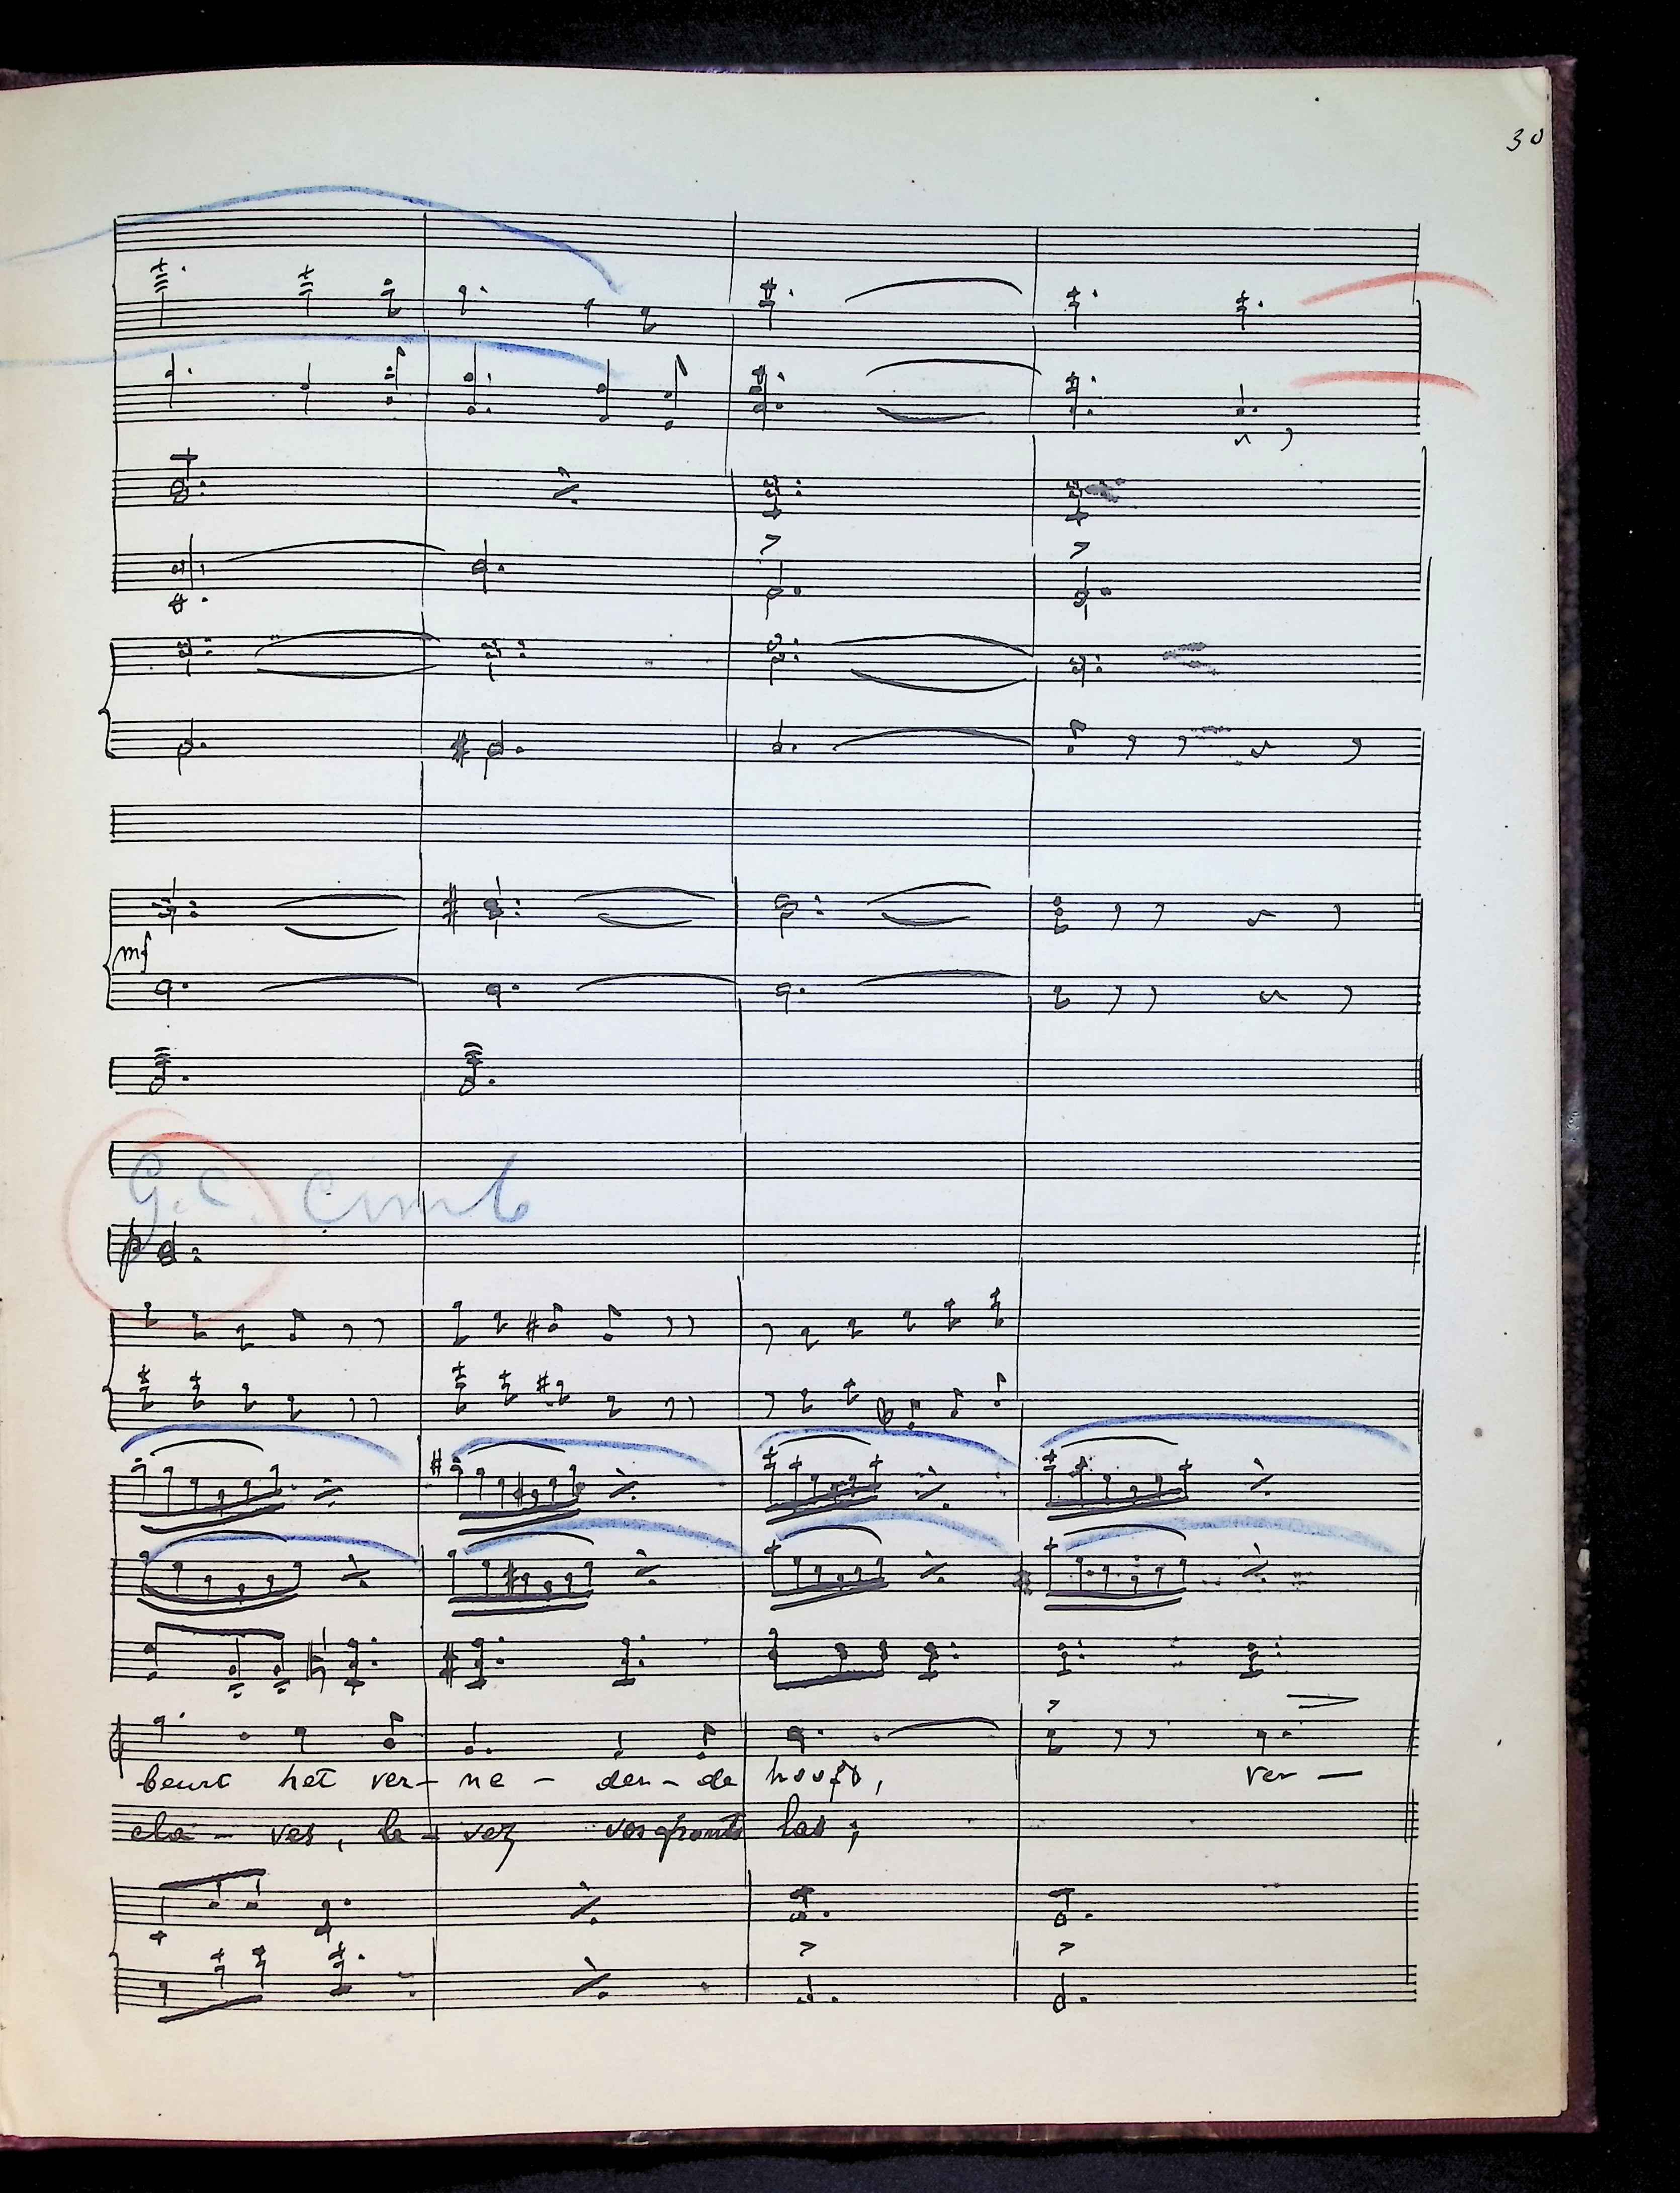 30
mf
G.C. Cimb
p
beurt het ver- ne - den - de hoofd, ver —
cla - ves, le - vez vos fronts las ;